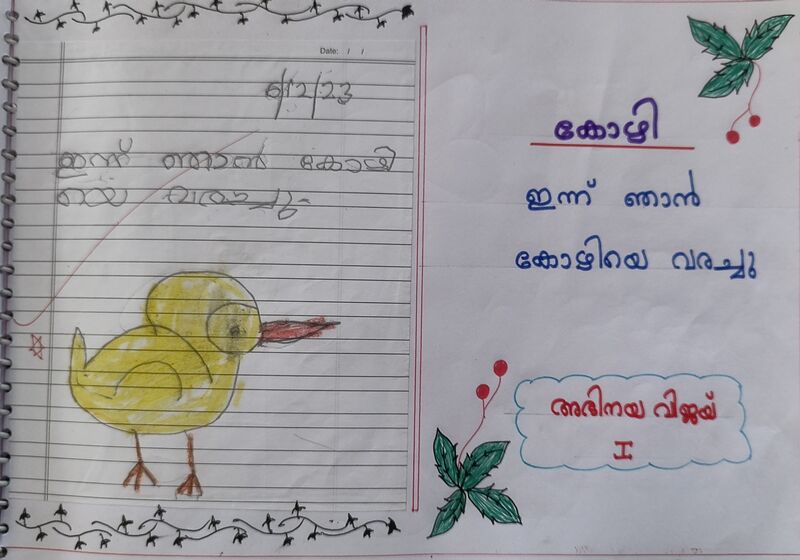 Date: / /
6/12/23
ഇന്ന് ഞാൻ കോഴി
യെ വരച്ചു.
കോഴി
ഇന്ന് ഞാൻ
കോഴിയെ വരച്ചു
അഭിനയ വിജയ്
I